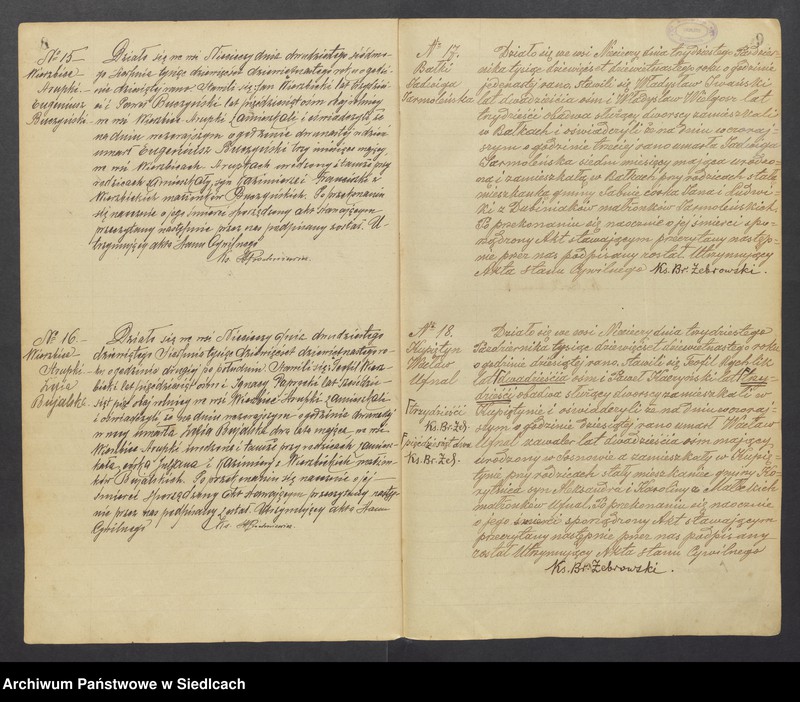 8
№ 15
Wierzbice
Strupki
Eugeniusz
Buczyński
Działo się we wsi Nieciecz dnia dwudziestego siódme-
go Sierpnia tysiąc dziewięćset dziewiętnastego roku o godzi-
nie dziesiątej rano. Stawili się Jan Wierzbicki lat
i Paweł Buczyński lat pięćdziesiąt osiem obaj rolnicy
we wsi Wierzbice Strupki zamieszkali i oświadczyli że
na dniu wczorajszym o godzinie dwunastej w dzień
umarł Eugeniusz Buczyński trzy miesiące mający
we wsi Wierzbicach Strupkach urodzony i tamże przy
rodzicach zamieszkały, syn Kazimierza i Franciszki z
Wierzbickich małżonków Buczyńskich. Po przekonaniu
się naocznie o jego śmierci sporządzony akt stawającym
przeczytany następnie przez nas podpisany został. U-
trzymujący akta Stanu Cywilnego
№ 16
Wierzbice
Strupki
Zofia
Bujalska
Działo się we wsi Nieciecz dnia dwudziestego
dziewiątego Sierpnia tysiąc dziewięćset dziewiętnastego ro-
ku o godzinie drugiej po południu. Stawili się Teofil Wierz-
bicki lat pięćdziesiąt osiem i Ignacy Paprocki lat
obaj rolnicy we wsi Wierzbice Strupki zamieszkali
i oświadczyli że na dniu wczorajszym o godzinie dwunastej
w nocy umarła Zofia Bujalska dwa lata mająca we wsi
Wierzbice Strupki urodzona i tamże przy rodzicach zamiesz-
kała, córka i Kazimiery z Wierzbickich małżon-
ków Bujalskich. Po przekonaniu się naocznie o jej
śmierci sporządzony akt stawającym przeczytany nastę-
pnie przez nas podpisany został. Utrzymujący akta Stanu
Cywilnego
9
№ 17.
Bałki
Jadwiga
Jarmolińska
Działo się we wsi Nieciecz dnia trzydziestego Paździer-
nika tysiąc dziewięćset dziewiętnastego roku o godzinie
jedenastej rano, stawili się Władysław Iwański
lat dwadzieścia osim i Władysław Walgosz lat
trzydzieści obadwa służący dworscy zamieszkali
w Bałkach i oświadczyli że na dniu wczoraj-
szym o godzinie trzeciej rano umarła Jadwiga
Jarmolińska siedm miesięcy mająca urodzo-
na i zamieszkała w Bałkach przy rodzicach stała
mieszkanka gminy Sabnie córka Jana i Ludwi-
ki z Dubiniaków małżonków Jarmolińskich.
Po przekonaniu się naocznie o jej śmierci spo-
rządzony Akt stawającym przeczytany następ-
nie przez nas podpisany został. Utrzymujący
Akta stanu Cywilnego Ks. Br. Żebrowski.
№ 18.
Kupiętyn
Wacław
Ufnal
trzydzieści
Ks. Br. Żeb.
pięćdziesiąt dwa
Ks. Br. Żeb.
Działo się we wsi Nieciecz dnia trzydziestego
Października tysiąc dziewięćset dziewiętnastego roku
o godzinie dziesiątej rano. Stawili się Teofil Rychlik
lat dwadzieścia osim i Paweł Kaczyński lat trzy-
dzieści obadwa służący dworscy zamieszkali w
Kupiętynie i oświadczyli że na dniu wczoraj-
szym o godzinie dziesiątej rano umarł Wacław
Ufnal kawaler lat dwadzieścia osim mający
urodzony w Sosnowie a zamieszkały w Kupię-
tynie przy rodzicach stały mieszkaniec gminy Ko-
rytnica syn Aleksandra i Karoliny z Małeckich
małżonków Ufnal. Po przekonaniu się naocznie
o jego śmierci sporządzony Akt stawającym
przeczytany następnie przez nas podpisany
został Utrzymujący Akta stanu Cywilnego
Ks. Br. Żebrowski.
Archiwum Państwowe w Siedlcach